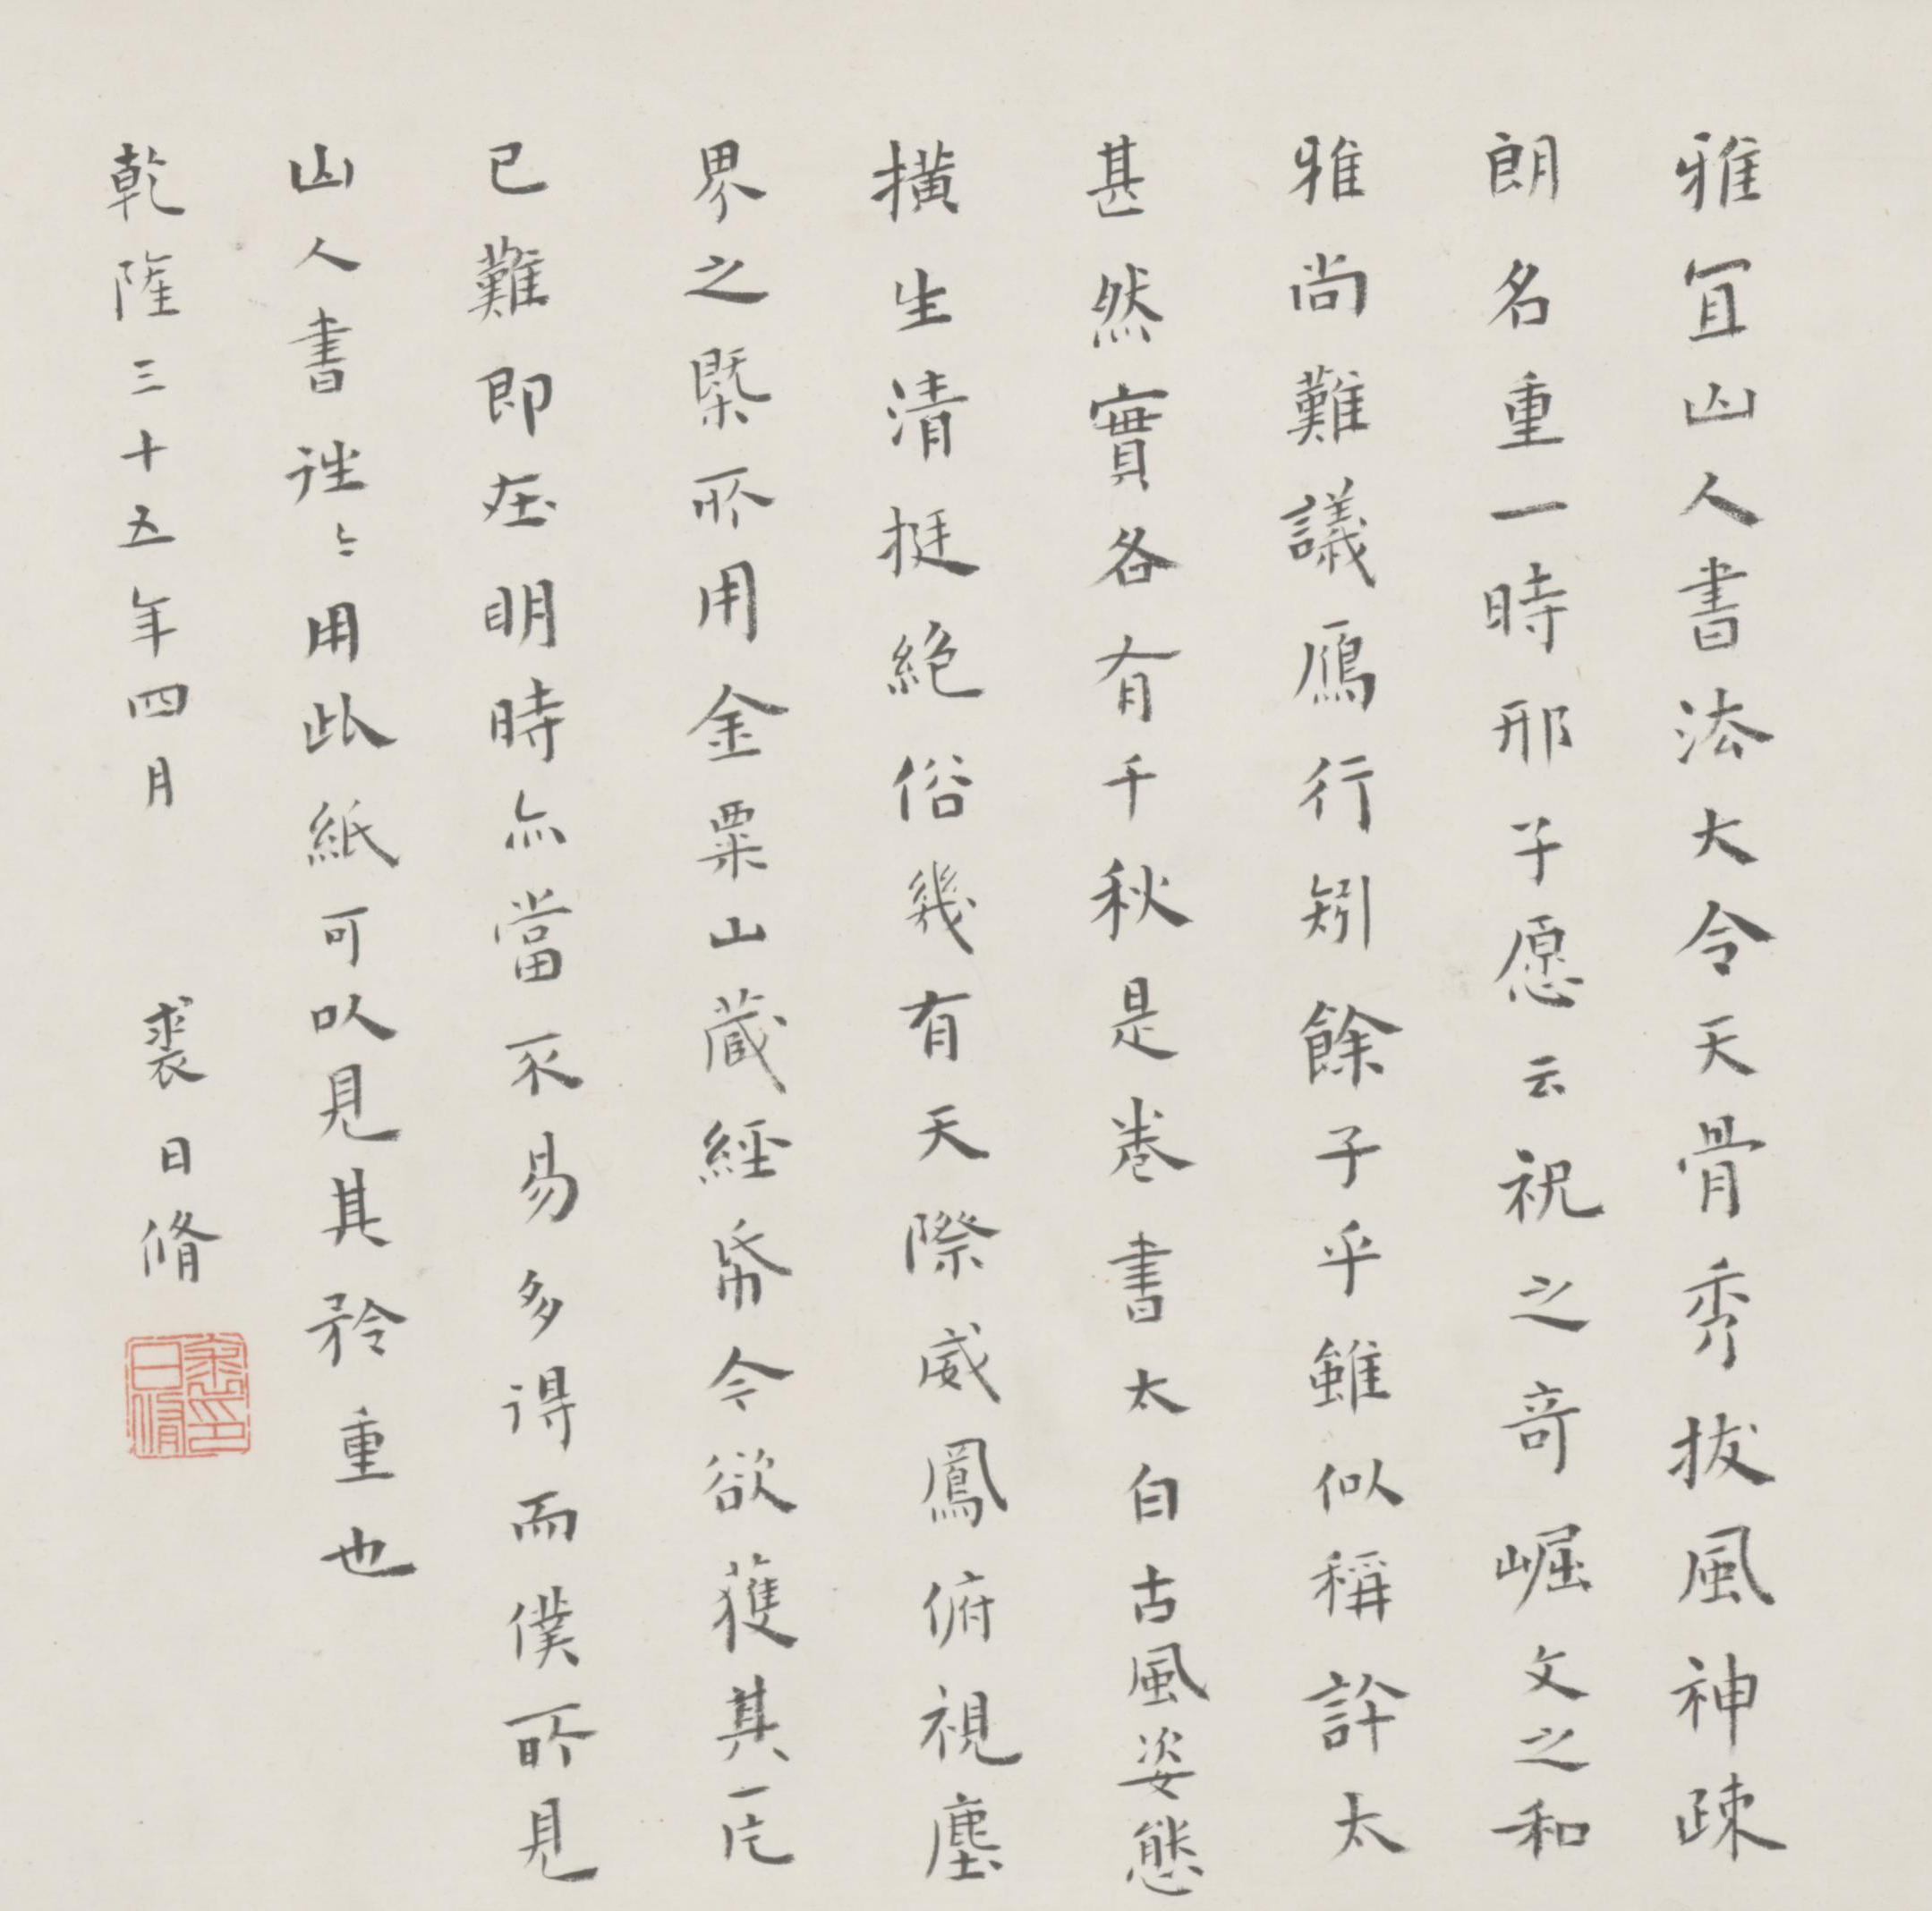 雅冝山人書法大令天骨秀拔風神疎
朗名重一時邢子愿云祝之奇崛文之和
雅尚難議鴈行矧餘子乎雖似稱許太
甚然實各有千秋是卷書太白古風姿態
撗生清挺絶俗幾有天際威鳳俯視塵
界之槩所用金粟山蔵經帋今欲獲其一尺
已難即在明時亦當不易多得而僕所見
山人書往〻用此紙可以見其矜重也
乾隆三十五年四月 裘日脩
裘印日修